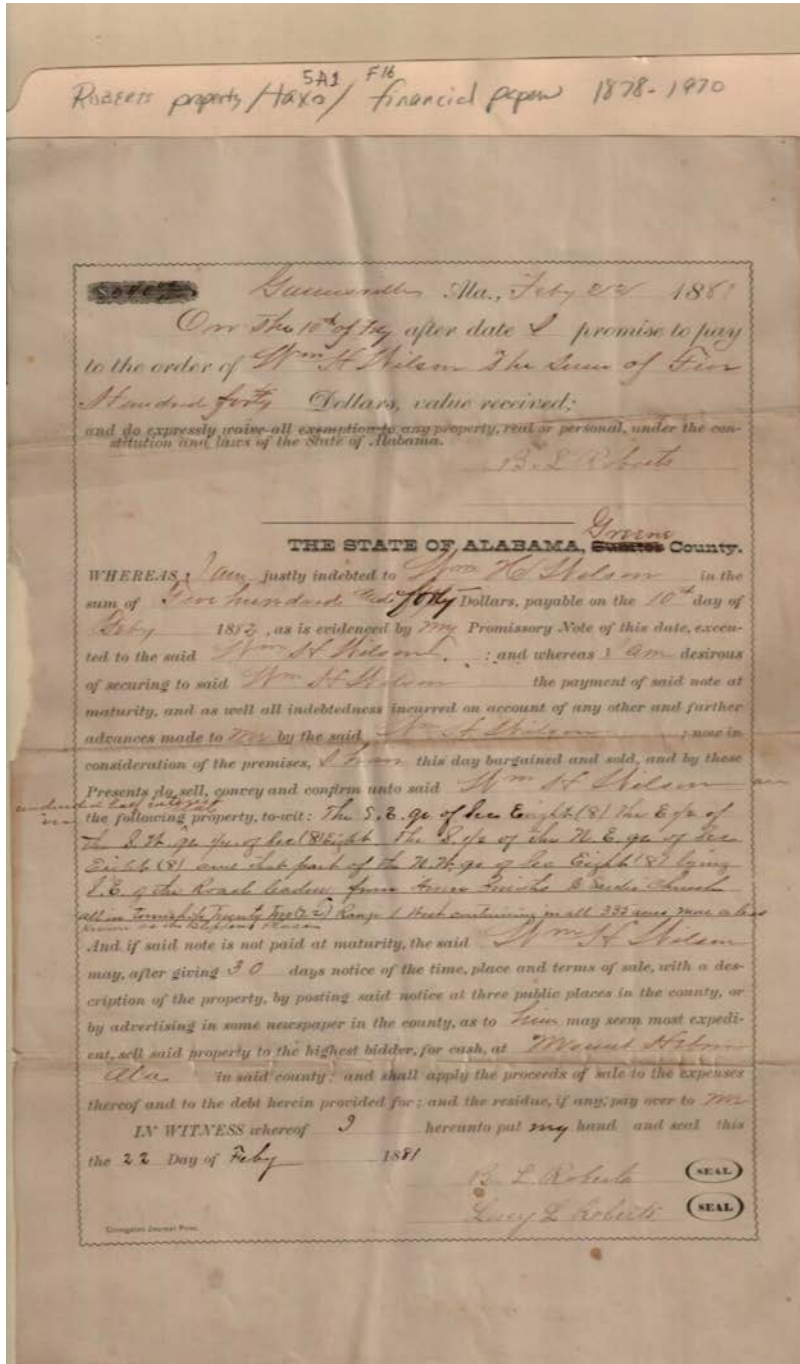 5A1 F16
ROBERTS property/taxo/ financial papers 1878-1970
Ala., Feby 22 1881
On The 10th of Feby after date I promise to pay
to the order of Wm H Wilson The Sum of Five
Hundred forty Dollars, value received;
and do expressly waive all exemption to any property, real or personal, under the con-
stitution and laws of the State of Alabama.
B. L Roberts
Greene
THE STATE OF ALABAMA, Sumter County.
WHEREAS, I am justly indebted to Wm H Wilson in the
sum of Five hundred and forty Dollars, payable on the 10th day of
Feby 1882, as is evidenced by my Promissory Note of this date, execu-
ted to the said Wm H Wilson : and whereas I am desirous
of securing to said Wm H Wilson the payment of said note at
maturity, and as well all indebtedness incurred on account of any other and further
advances made to me by the said Wm H Wilson ; now in
consideration of the premises, I have this day bargained and sold, and by these
Presents do sell, convey and confirm unto said Wm H Wilson an
undivided half interest
in the following property, to-wit: The S. E. qr of Sec Eight (8) The E/2 of
the S. W. qr of Sec (8) Eight The S/2 of the N. E. qr of Sec
Eight (8) and that part of the N. W. qr of Sec Eight (8) lying
S. E. of the Road leading from Church
all in Township Twenty Two (22) Range 1 West containing in all 335 acres more or less
known as the place
And if said note is not paid at maturity, the said Wm H Wilson
may, after giving 30 days notice of the time, place and terms of sale, with a des-
cription of the property, by posting said notice at three public places in the county, or
by advertising in some newspaper in the county, as to him may seem most expedi-
ent, sell said property to the highest bidder, for cash, at Mount Hebron
Ala in said county: and shall apply the proceeds of sale to the expenses
thereof and to the debt herein provided for; and the residue, if any, pay over to me
IN WITNESS whereof I hereunto put my hand and seal this
the 22 Day of Feby 1881
B. L Roberts (SEAL)
Lucy L Roberts (SEAL)
Livingston Journal Print.